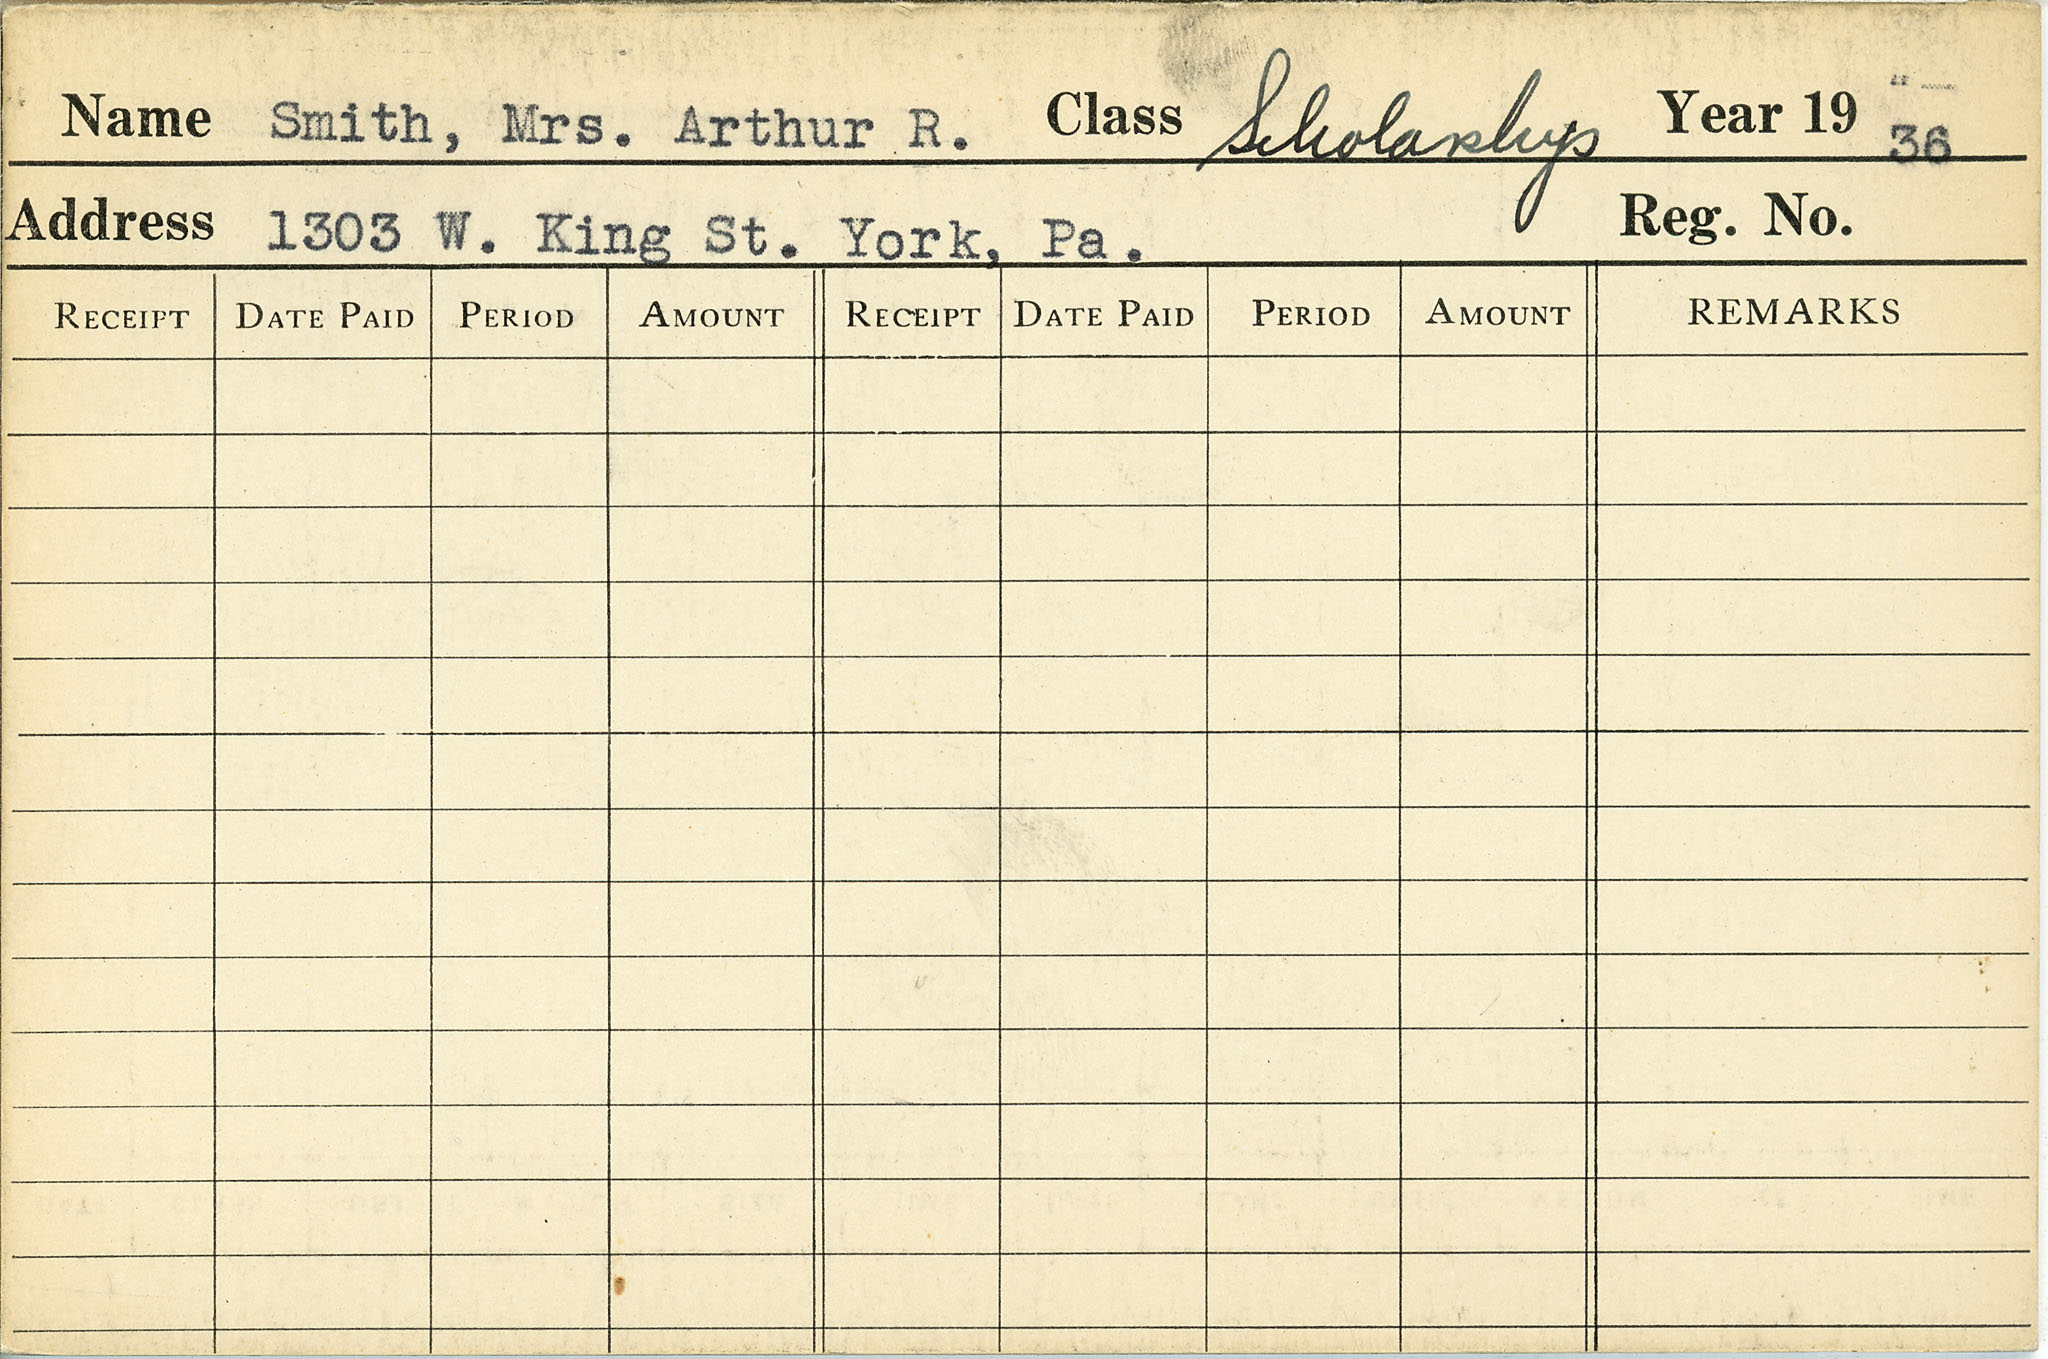 Name Smith, Mrs. Arthur R. Class Scholarship Year 19 36
Address 1303 W. King St. York, Pa. Reg. No.
RECEIPT DATE PAID PERIOD AMOUNT RECEIPT DATE PAID PERIOD AMOUNT REMARKS